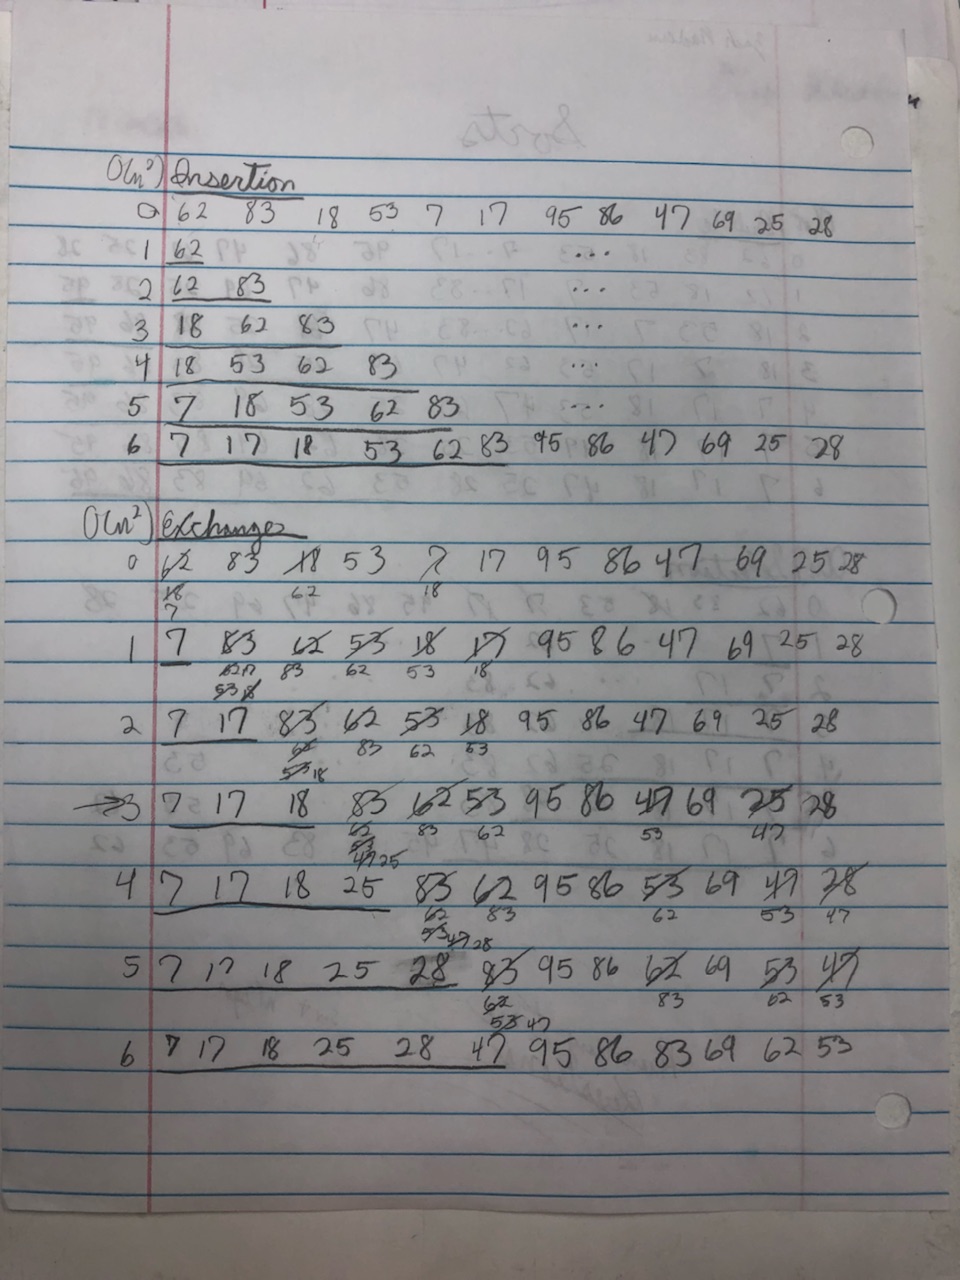 O(n²) Insertion
0 62 83 18 53 7 17 95 86 47 69 25 28
1 62 ...
2 62 83 ...
3 18 62 83 ...
4 18 53 62 83 ...
5 7 18 53 62 83 ...
6 7 17 18 53 62 83 95 86 47 69 25 28
O(n²) Exchange
0 62 83 18 53 7 17 95 86 47 69 25 28
18 62 18
7
1 7 83 62 53 18 17 95 86 47 69 25 28
62 17 83 62 53 18
53 18
2 7 17 83 62 53 18 95 86 47 69 25 28
62 83 62 53
53 18
→3 7 17 18 83 62 53 95 86 47 69 25 28
62 83 62 53 47
53
47 25
4 7 17 18 25 83 62 95 86 53 69 47 28
62 83 62 53 47
53 47 28
5 7 17 18 25 28 83 95 86 62 69 53 47
62 83 62 53
53 47
6 7 17 18 25 28 47 95 86 83 69 62 53
Sorts